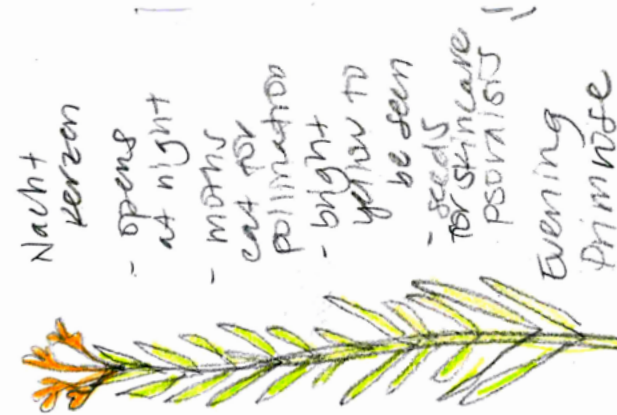 Nacht
kerzen
- opens
at night
- moths
eat for
pollination
- bright
yellow to
be seen
- seeds
for skincare
psoraisis
Evening
Primrose